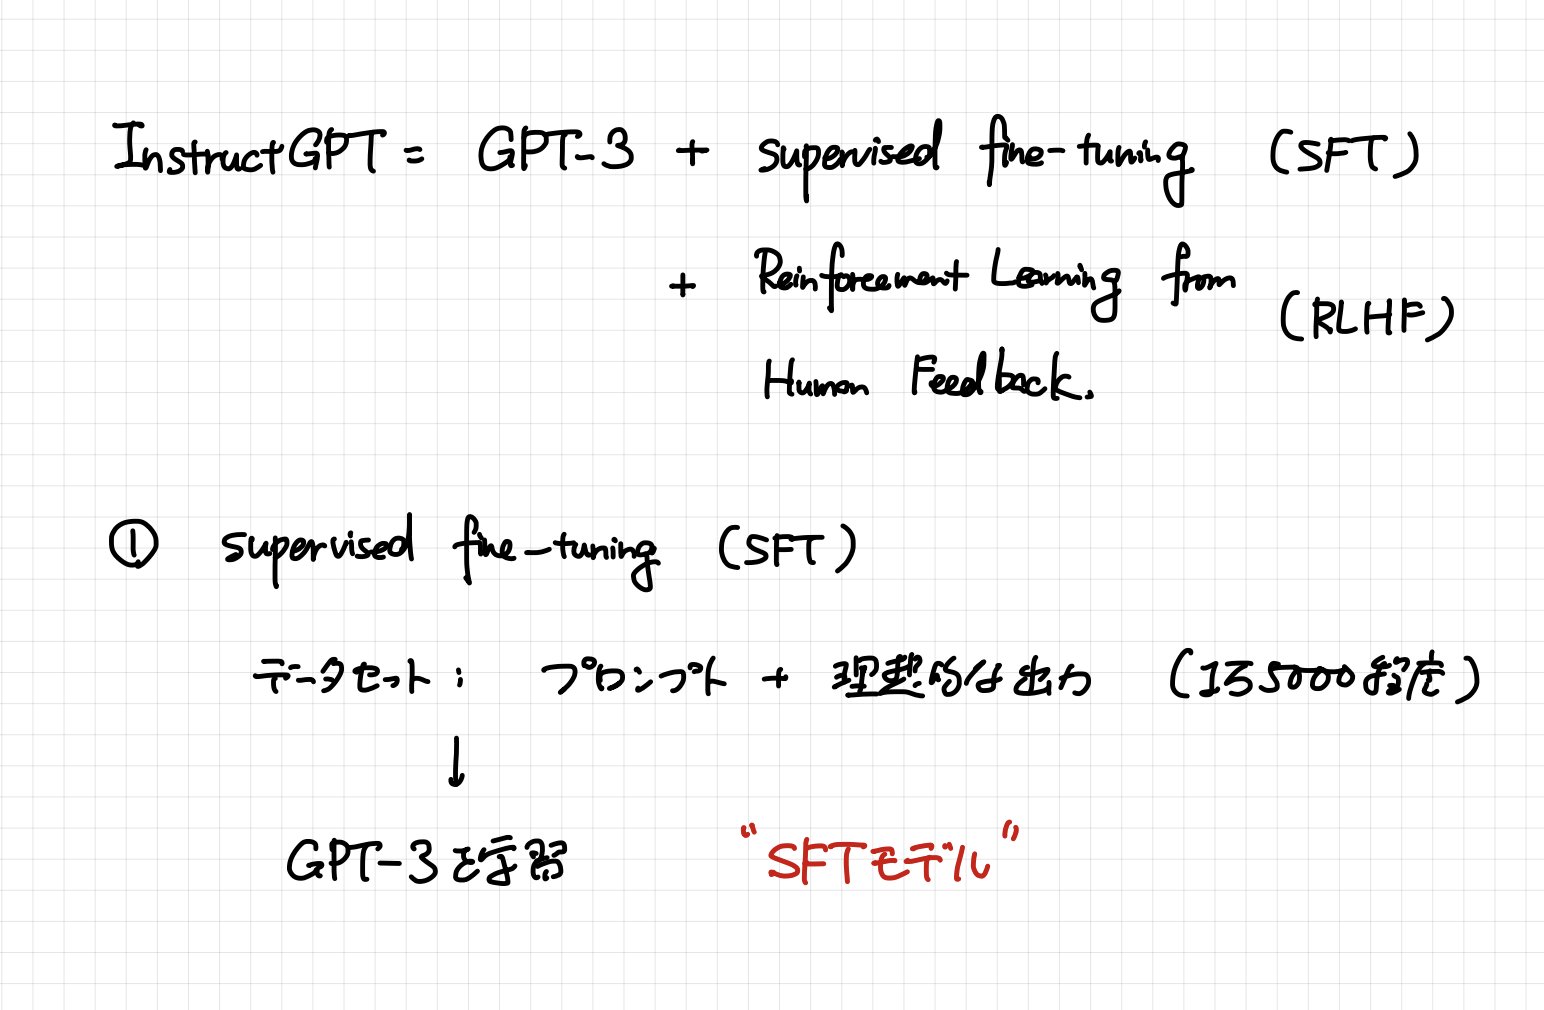 InstructGPT = GPT-3 + supervised fine-tuning (SFT)
+ Reinforcement Learning from
Human Feedback. (RLHF)
① supervised fine-tuning (SFT)
データセット: プロンプト + 理想的な出力 (1万5000程度)
↓
GPT-3を学習 "SFTモデル"